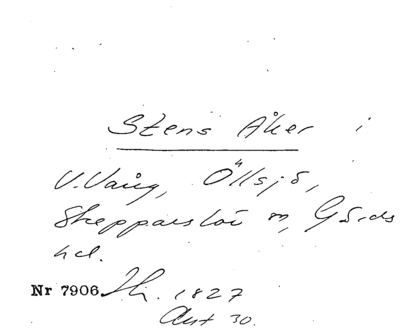 Stens Åker i
V. Vång, Öllsjö,
Skepparslöv sn, Gärds
hd.
Nr 7906 Jh. 1827
Akt 30.